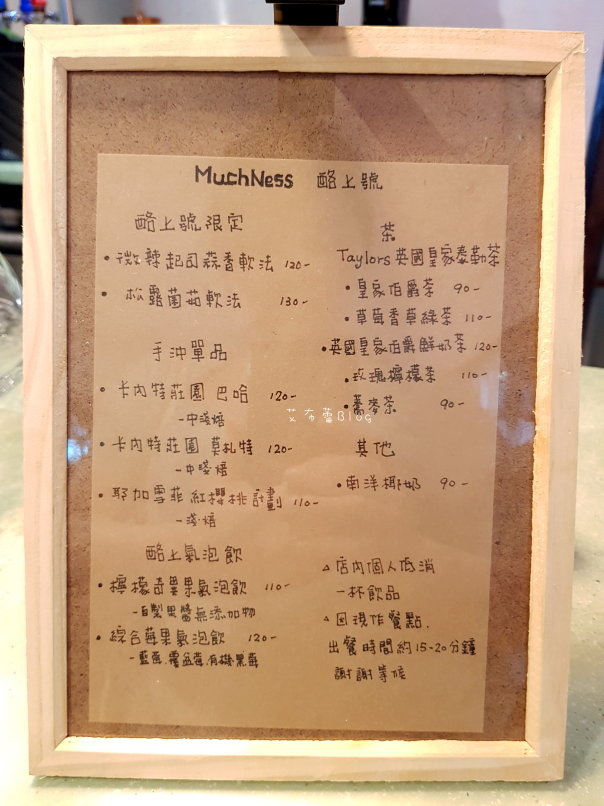 MuchNess 酪上號
酪上號限定
• 微辣起司蒜香軟法 120-
• 松露菌菇軟法 130-
手沖單品
• 卡內特莊園 巴哈 120-
-中淺焙
• 卡內特莊園 莫札特 120-
-中淺焙
• 耶加雪菲 紅櫻桃計劃 110-
-淺焙
酪上氣泡飲
• 檸檬奇異果氣泡飲 110-
-自製果醬無添加物
• 綜合莓果氣泡飲 120-
-藍莓.覆盆莓.有機黑莓
茶
Taylors英國皇家泰勒茶
• 皇家伯爵茶 90-
• 草莓香草綠茶 110-
• 英國皇家伯爵鮮奶茶 120-
• 玫瑰檸檬茶 110-
• 蕎麥茶 90-
其他
• 南洋椰奶 90-
△ 店內個人低消
一杯飲品
△ 因現作餐點.
出餐時間約15-20分鐘
謝謝等候
艾布蕾Blog